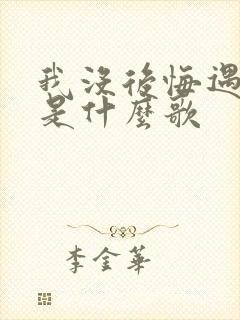 我沒後悔遇
是什麼歌
李金華